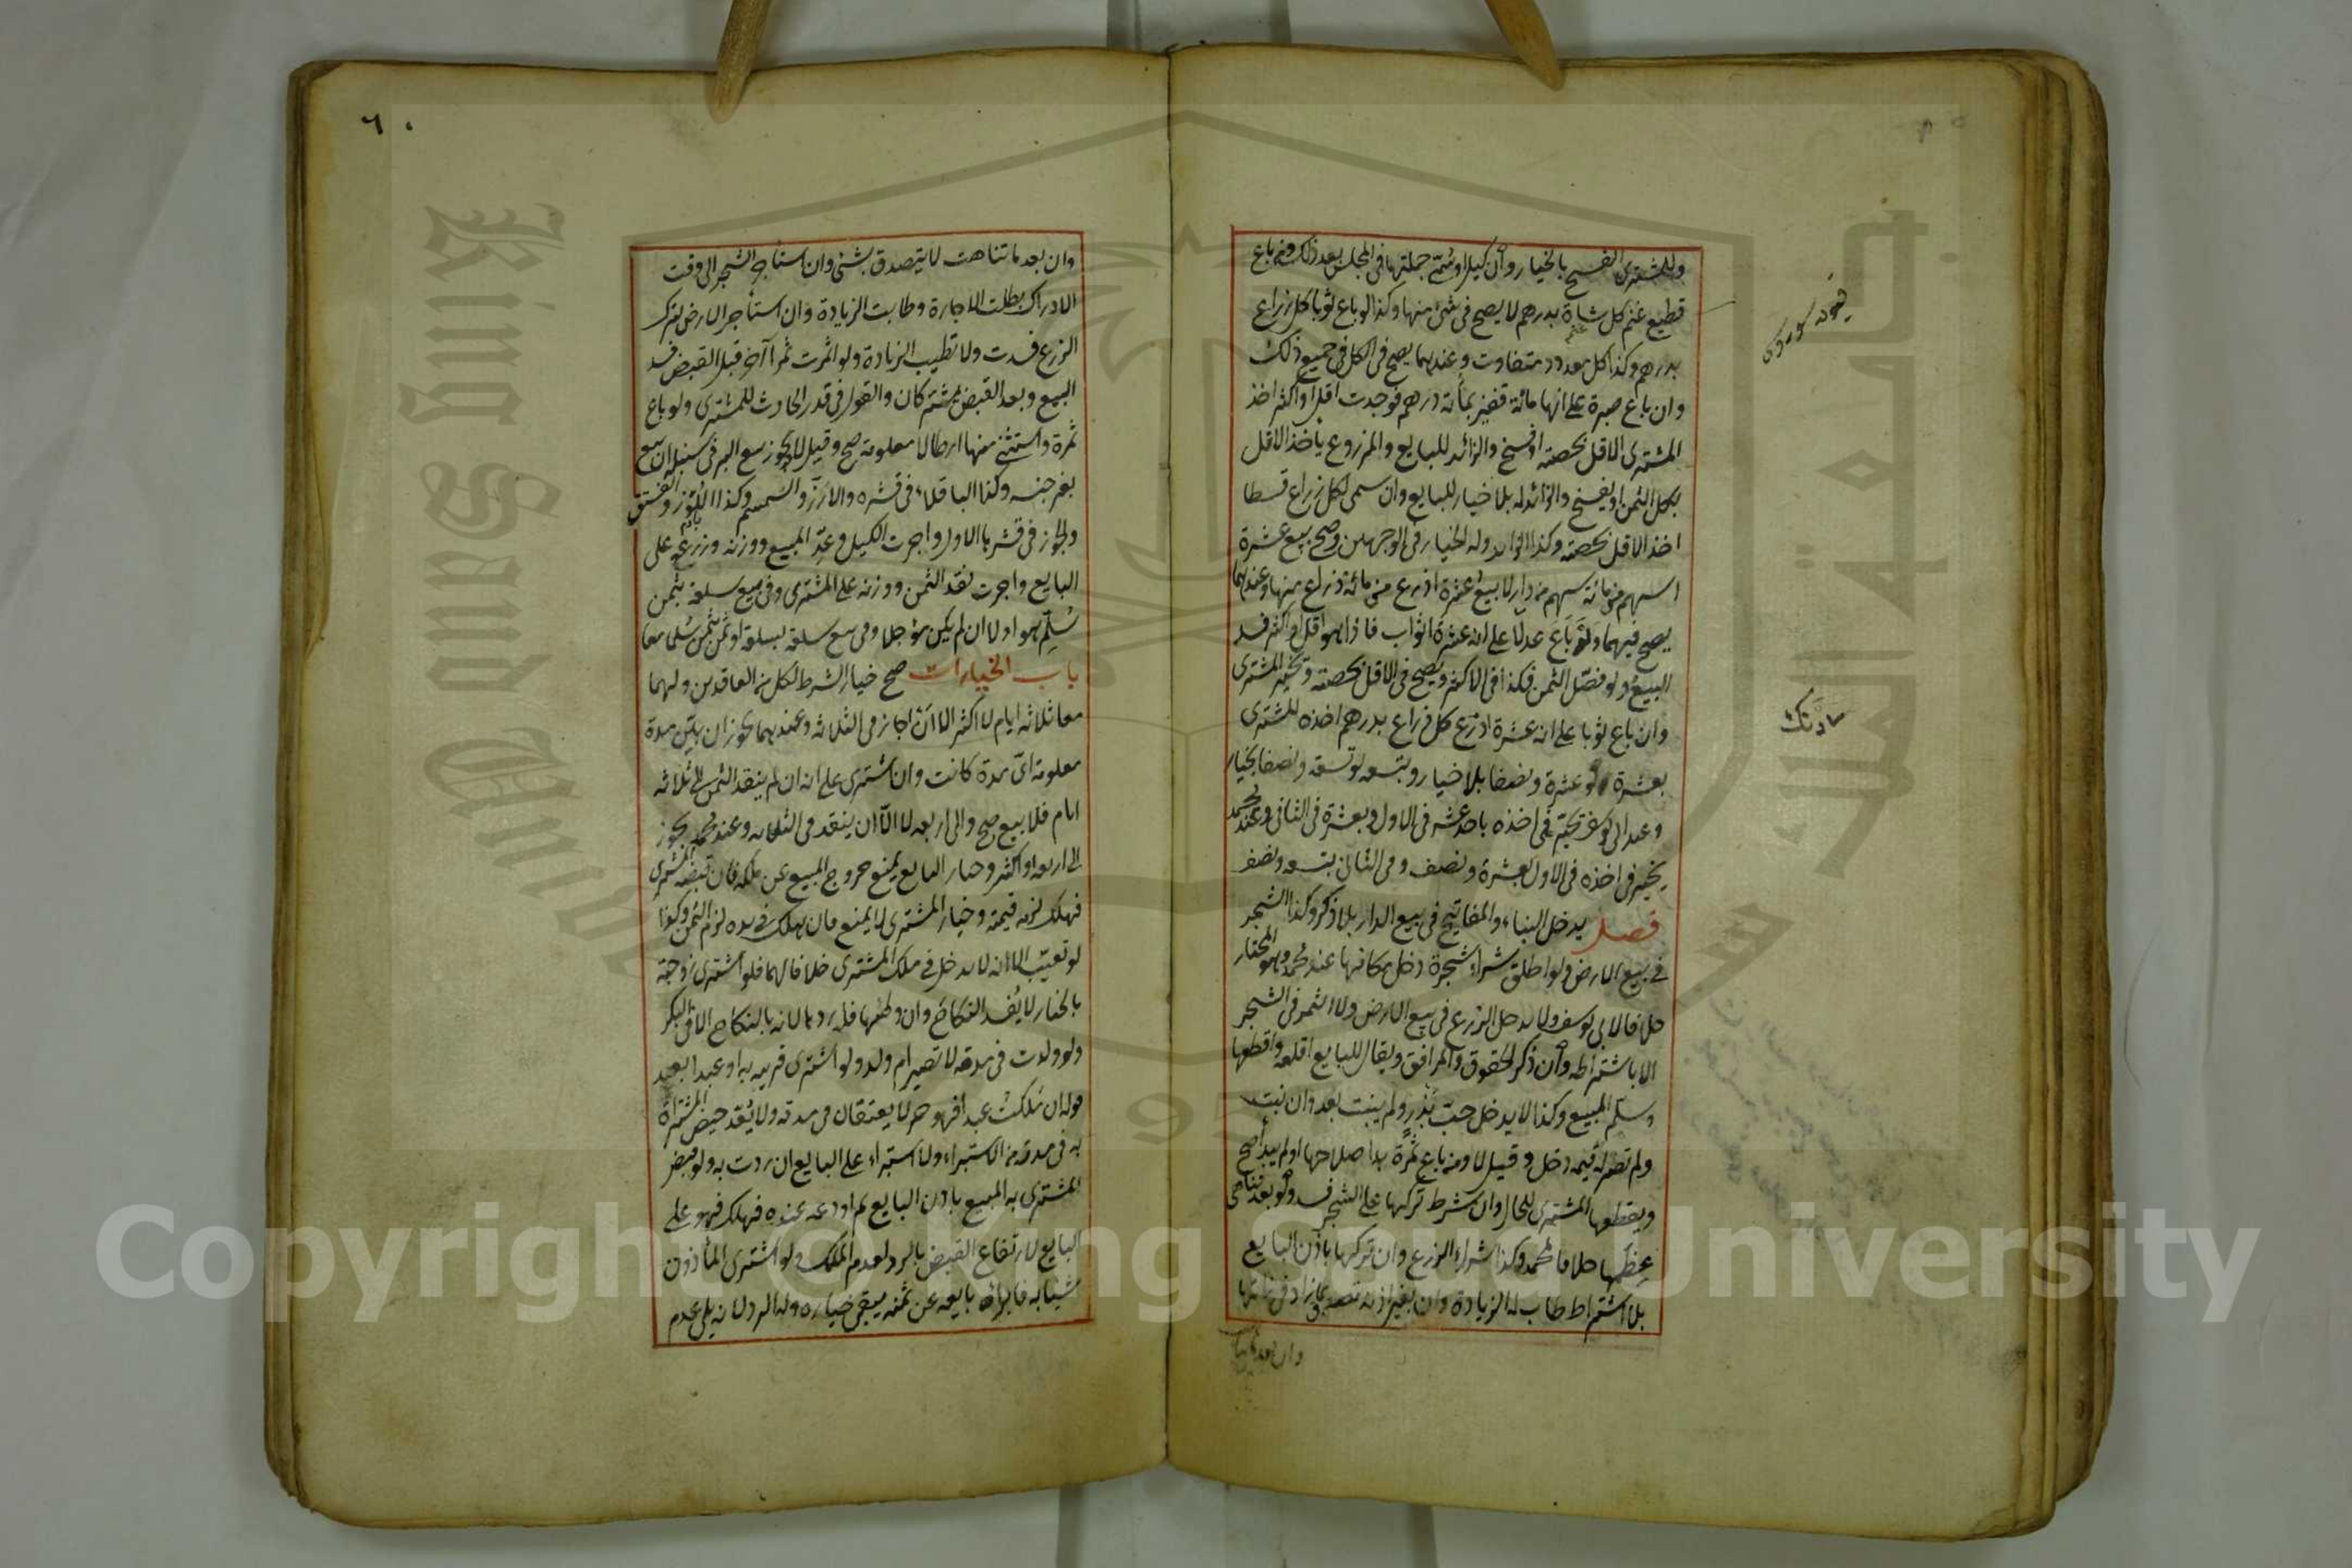 وللمشترى الفسخ بالخيار وان كيل او سمّى جملتها فى المجلس بعد ذلك ومن باع
قطيع غنم كل شاة بدرهم لا يصح فى شئ منها وكذا لو باع ثوبا كل زراع
بدرهم وكذا كل معدود متفاوت وعندهما يصح فى الكل فى جميع ذلك
وان باع صبرة على انها مائة قفيز بمأته درهم فوجدت اقل او اكثر اخذ
المشترى الاقل بحصته او فسخ والزائد للبايع والمزروع يأخذ الاقل
بكل الثمن او يفسخ والزائد له بلا خيار للبايع وان سمى لكل زراع قسطا
اخذ الاقل بحصته وكذا الزايد وله الخيار فى الوجهين وصح بيع عشرة
اسهم من مائة سهم من دار لا بيع عشرة اذرع من مائة ذراع منها وعندهما
يصح فيهما ولو باع عدلا على انه عشرة اثواب فاذا هو اقل او اكثر فسد
البيع ولو فصّل الثمن فكذا فى الاكثر ويصح فى الاقل بحصته وتخير المشترى
وان باع ثوبا على انه عشرة اذرع كل ذراع بدرهم اخذه المشترى
بعشرة لو عشرة ونصفا بلا خيار وبتسعه لو تسعة ونصفا بخيار
وعند ابى يوسف تخيّر فى اخذه باحد عشر فى الاول وبعشرة فى الثانى وعند محمد
يخير فى اخذه فى الاول بعشرة ونصف وفى الثانى بتسعه ونصف
فصل يدخل البناء والمفاتيح فى بيع الدار بلا ذكر وكذا الشجر
فى بيع الارض ولو اطلق شراء شجرة دخل مكانها عند محمد وهو المختار
خلافا لابى يوسف ولا يدخل الزرع فى بيع الارض ولا الثمر فى الشجر
الا باشتراطه وان ذكر الحقوق والمرافق ويقال للبايع اقلعه واقطعها
وسلّم المبيع وكذا لا يدخل حبّ بُذر ولم ينبت بعد وان نبت
ولم تصر له قيمه دخل وقيل لا ومن باع ثمرة بدا صلاحها او لم يبد صح
ويقطعها المشترى للحال وان شرط تركها على الشجر فسد ولو بعد تناهى
عظمها خلافا لمحمد وكذا شراء الزرع وان تركها باذن البايع
بلا اشتراط طاب له الزيادة وان بغير اذنه تصدق بما زاد فى ذاتها
وان بعد ما تناهت
سادنك
٦٠
وان بعد ما تناهت لا يتصدق بشئ وان استأجر الشجر الى وقت
الادراك بطلت الاجارة وطابت الزيادة وان استأجر الارض لترك
الزرع فسدت ولا تطيب الزيادة ولو اثمرت ثمرا آخر قبل القبض فسد
البيع وبعد القبض يشتركان والقول فى قدر الحادث للمشترى ولو باع
ثمرة واستثنى منها ارطالا معلومة صح وقيل لا ويجوز بيع البر فى سنبله ان بيع
بغير جنسه وكذا الباقلاء فى قشره والارز والسمسم وكذا اللوز والفستق
والجوز فى قشرها الاول واجرت الكيل وعدّ المبيع ووزنه وزرعه على
البايع واجرت نقد الثمن ووزنه على المشترى وفى بيع سلعة بثمن
سُلّم هو اولا ان لم يكن مؤجلا وفى بيع سلعة بسلعة او ثمن بثمن سُلما معا
باب الخيارات صح خيار الشرط لكل من العاقدين ولهما
معا ثلاثه ايام لا اكثر الا انّه اجاز فى الثلاثه وعندهما يجوز ان بيّن مدة
معلومة اىّ مدة كانت وان اشترى على انه ان لم ينقد الثمن الى ثلاثه
ايام فلا بيع صح والى اربعه لا الّا ان ينقد فى الثلثه وعند محمد يجوز
الى اربعه او اكثر وخيار البايع يمنع خروج المبيع عن ملكه فان قبضه المشترى
فهلك لزمه قيمته وخيار المشترى لا يمنع فان هلك فى يده لزم الثمن وكذا
لو تعيّب الا انه لا يدخل فى ملك المشترى خلافا لهما فلو اشترى زوجته
بالخيار لا يُفسد النكاح وان وطئها فله ردها لانه بالنكاح الا فى البكر
ولو ولدت فى مدته لا تصير ام ولد ولو اشترى قريبه به او عبدا بعد
قوله ان ملكتُ عبدا فهو حر لا يعتقان فى مدته ولا يُعَد حيض المشتراة
به فى مدته من الاستبراء ولا استبراء على البايع ان ردت به ولو قبض
المشترى به المبيع باذن البايع ثم اودعه عنده فهلك فهو على
البايع لارتفاع القبض بالرد لعدم الملك ولو اشترى المأذون
شيئا به فابرأه بايعه عن ثمنه يبقى خياره وله الرد لانه يلى عدم
Copyright © King Saud University
King Saud University
جامعة الملك سعود